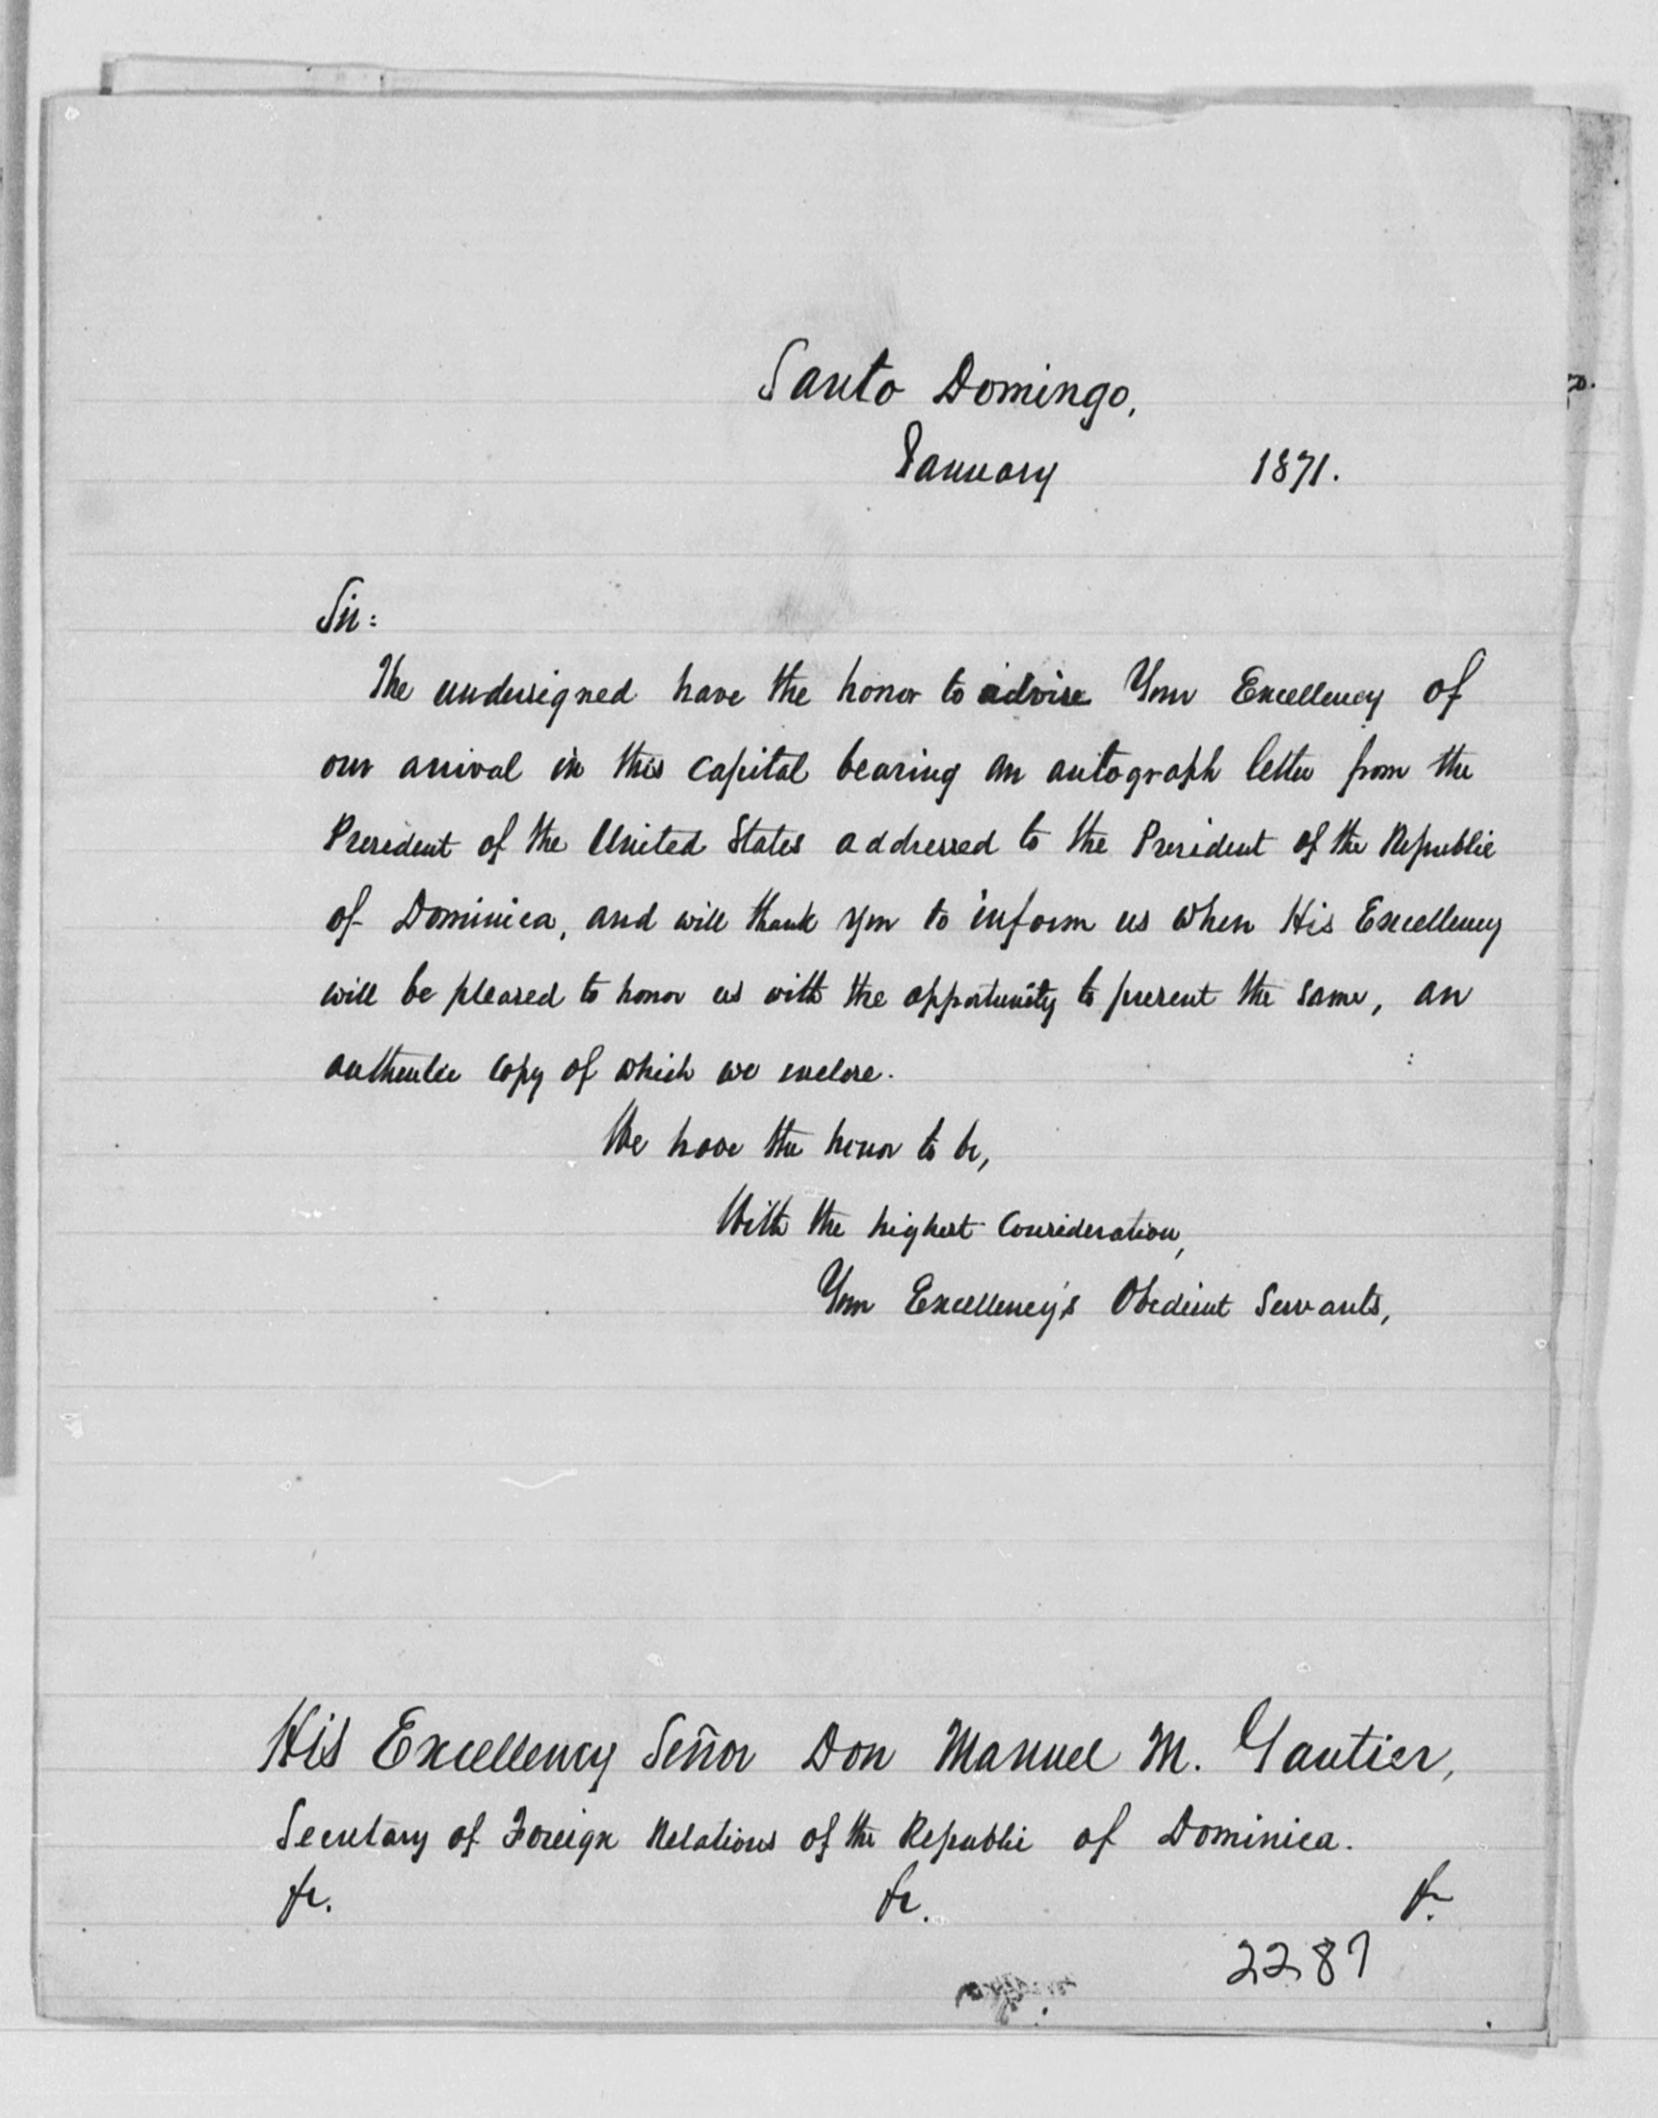 Santo Domingo,
January 1871.
Sir:
The undersigned have the honor to advise Your Excellency of
our arrival in this capital bearing an autograph letter from the
President of the United States addressed to the President of the Republic
of Dominica, and will thank you to inform us when His Excellency
will be pleased to honor us with the opportunity to present the same, an
authentic copy of which we enclose.
We have the honor to be,
With the highest Consideration,
Your Excellency's Obedient Servants,
His Excellency Señor Don Manuel M. Gautier,
Secretary of Foreign Relations of the Republic of Dominica.
&c. &c. &c.
2287